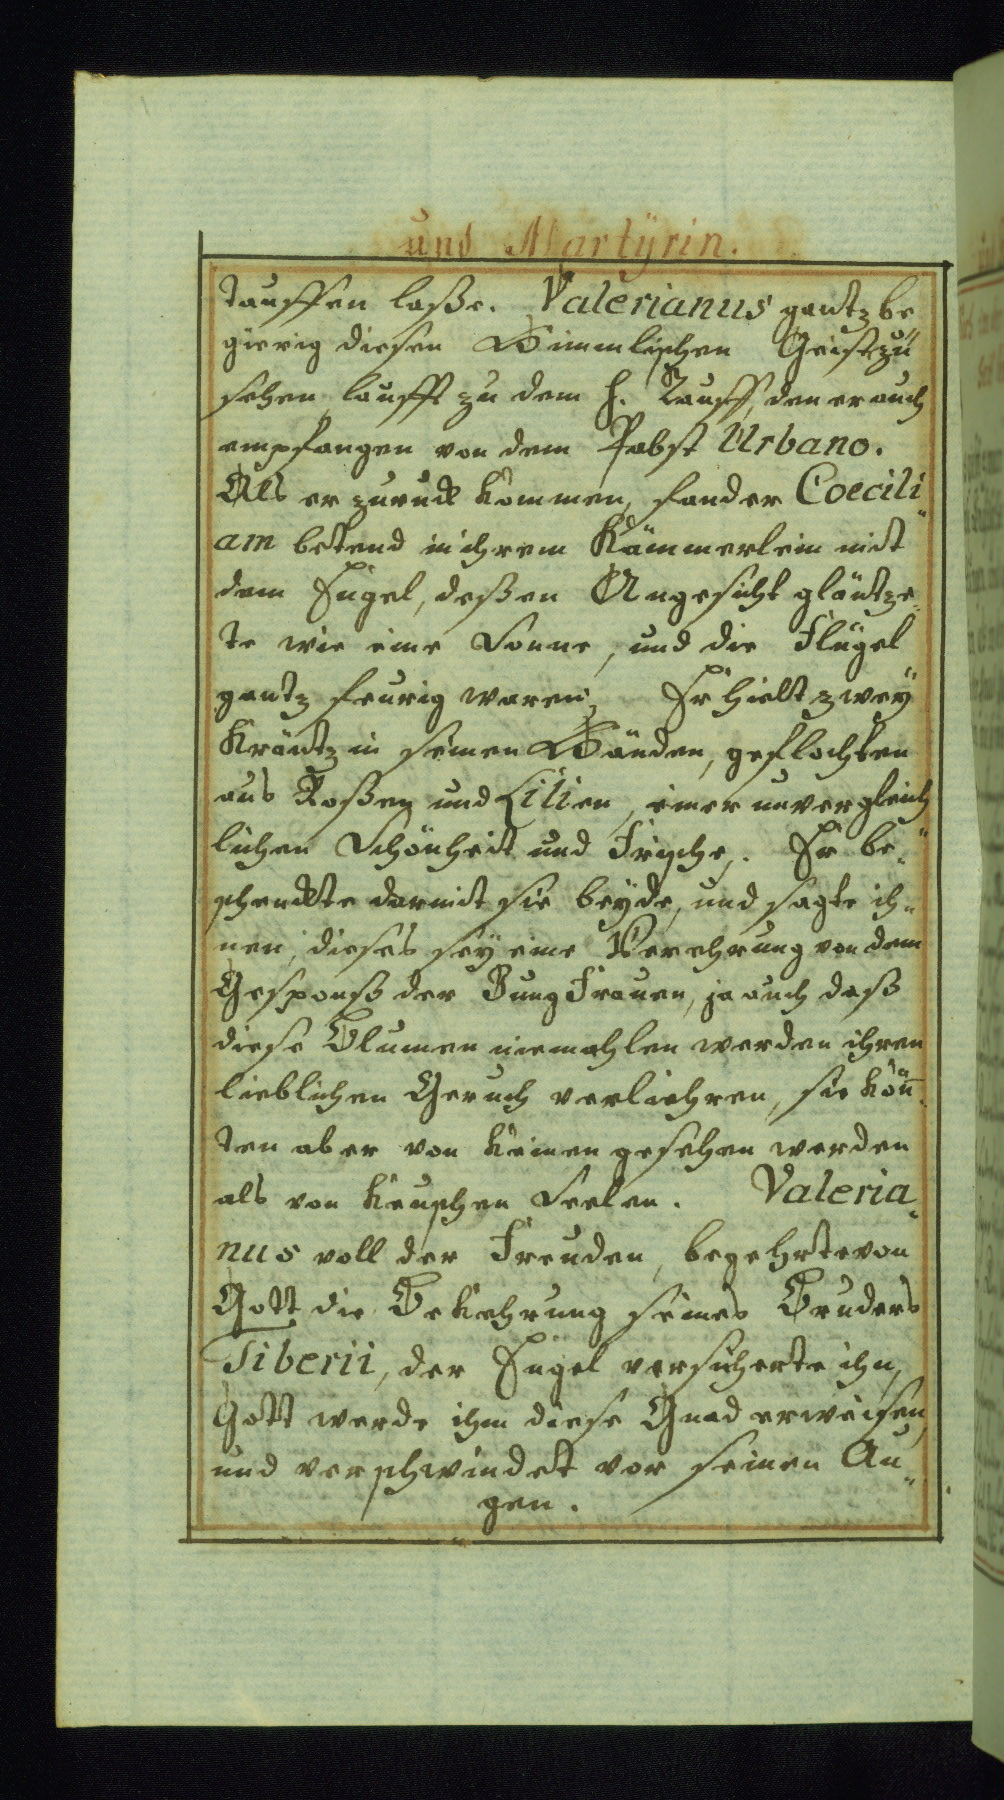 und Martÿrin.
tauffen laße. Valerianus gantz be
gierig diesen Himmlischen Geist zu
sehen laufft zu dem H. Tauff, den er auch
empfangen von dem Pabst Urbano.
Als er zuruck kommen, fander Coecili„
am bettend in ihrem Kämmerlein mit
dem Engel, deßen Angesicht gläntze„
te wie eine Sonne, und die Flügel
gantz feurig waren, Er hielt zweÿ
Kräntz in seinen Händen, geflochten
aus Roßen und Lilien, einer unvergleich
lichen Schönheit und Frische. Er be„
schenckte darmit sie beÿde, und sagte ih„
nen, dieses seÿ eine Verehrung von dem
Gesponß der Jungfrauen, ja auch daß
diese Blumen niemahlen werden ihren
lieblichen Geruch verliehren, sie kön̄„
ten aber von keinen gesehen werden
als von keuschen Seelen. Valeria„
nus voll der Freuden, begehrte von
Gott die Bekehrung seines Bruders
Tiberii, der Engel versicherte ihn,
Gott werde ihm diese Gnad erweisen,
und verschwindet vor seinen Au„
gen.